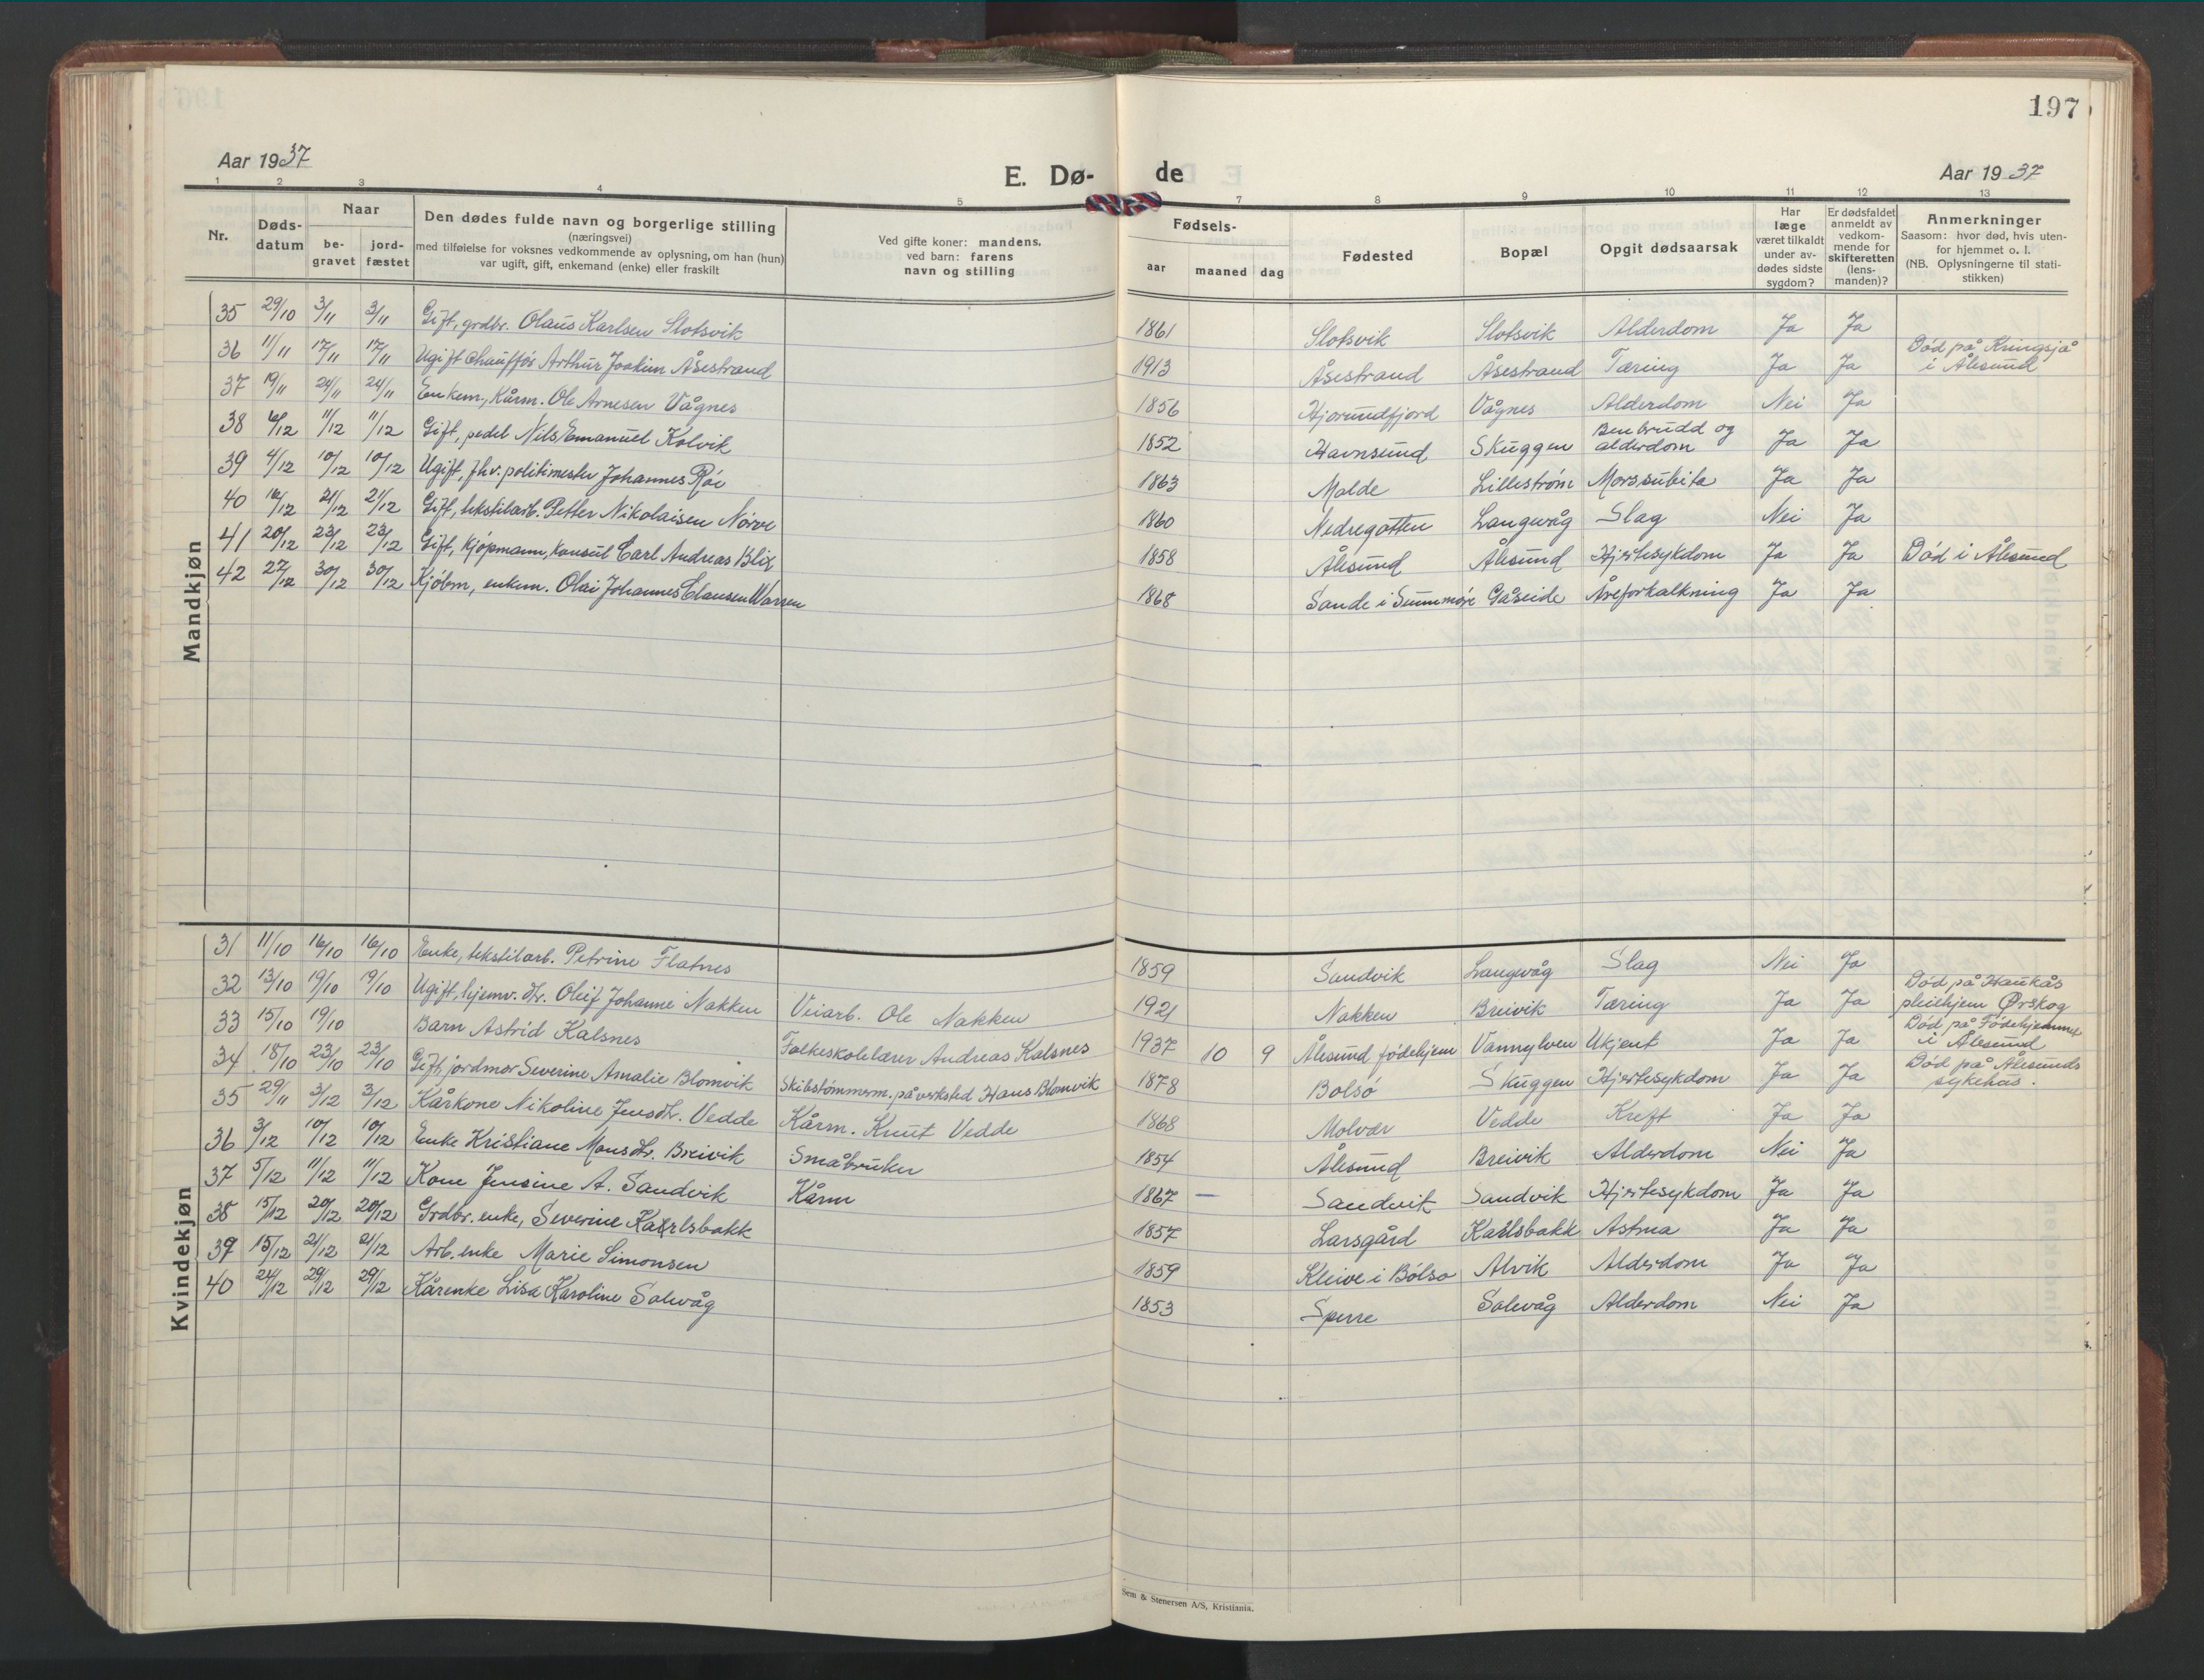 197
Aar 1937
E. Dø-
de
Aar 1937
1 2 3 4 5 7 8 9 10 11 12 13
Nr.
Døds-
datum
Naar
be-
gravet
jord-
fæstet
Den dødes fulde navn og borgerlige stilling
(næringsvei)
med tilføielse for voksnes vedkommende av oplysning, om han (hun)
var ugift, gift, enkemand (enke) eller fraskilt
Ved gifte koner: mandens.
ved barn: farens
navn og stilling
Fødsels-
aar maaned dag
Fødested
Bopæl
Opgit dødsaarsak
Har
læge
været tilkaldt
under av-
dødes sidste
sygdom?
Er dødsfaldet
anmeldt av
vedkom-
mende for
skifteretten
(lens-
manden)?
Anmerkninger
Saasom: hvor død, hvis uten-
for hjemmet o. l.
(NB. Oplysningerne til stati-
stikken)
Mandkjøn
35 29/10 3/11 3/11 Gift, grdbr. Olaus Karlsen Slotsvik 1861 Slotsvik Slotsvik Alderdom Ja Ja
36 11/11 17/11 17/11 Ugift Chauffør Arthur Joakim Åsestrand 1913 Åsestrand Åsestrand Tæring Ja Ja Død på Kringsjå
i Ålesund
37 19/11 24/11 24/11 Enkem, Kårm. Ole Arnesen Vågnes 1856 Hjørundfjord Vågnes Alderdom Nei Ja
38 6/12 11/12 11/12 Gift, pedel Nils Emanuel Kolvik 1852 Havnsund Skuggen Benbrudd og
alderdom Ja Ja
39 4/12 10/12 10/12 Ugift, fhv. politimester Johannes Røe 1863 Molde Lillestrøm Mors subita Ja Ja
40 16/12 21/12 21/12 Gift, tekstilarb. Petter Nikolaisen Nørve 1860 Nedregotten Langevåg Slag Nei Ja
41 20/12 23/12 23/12 Gift, Kjøpmann, Konsul Carl Andreas Blix 1858 Ålesund Ålesund Hjertesykdom Ja Ja Død i Ålesund
42 27/12 30/12 30/12 Kjøbm, enkem. Olai Johannes Clausen Warren 1868 Sande i Sunnmøre Gåseide Åreforkalkning Ja Ja
Kvindekjøn
31 11/10 16/10 16/10 Enke, tekstilarb. Petrine Flatnes 1859 Sandvik Langevåg Slag Nei Ja
32 13/10 19/10 19/10 Ugift, hjemv. dtr. Oleif Johanne Nakken Veiarb. Ole Nakken 1921 Nakken Breivik Tæring Ja Ja Død på Haukås
pleiehjem Ørskog
33 15/10 19/10 Barn Astrid Kalsnes Folkeskolelærer Andreas Kalsnes 1937 10 9 Ålesund fødehjem Vannylven Ukjent Ja Ja Død på Fødehjemmet
i Ålesund
34 18/10 23/10 23/10 Gift, jordmor Severine Amalie Blomvik Skibstømmerm. på verksted Hans Blomvik 1878 Bolsø Skuggen Hjertesykdom Ja Ja Død på Ålesunds
sykehus.
35 29/11 3/12 3/12 Kårkone Nikoline Jensdtr. Vedde Kårm. Knut Vedde 1868 Molvær Vedde Kreft Ja Ja
36 3/12 10/12 10/12 Enke Kristiane Monsdtr. Breivik Småbruker 1854 Ålesund Breivik Alderdom Nei Ja
37 5/12 11/12 11/12 Kone Jensine A. Sandvik Kårm 1867 — Sandvik Sandvik Hjertesykdom Ja Ja
38 15/12 20/12 20/12 Grdbr. enke, Severine Karlsbakk 1857 Larsgård Karlsbakk Astma Ja Ja
39 15/12 21/12 21/12 Arb. enke Marie Simonsen 1859 Kleive i Bolsø Alvik Alderdom Ja Ja
40 24/12 29/12 29/12 Kårenke Lisa Karoline Solevåg 1853 Sperre Solevåg Alderdom Nei Ja
Sem & Stenersen A/S, Kristiania.